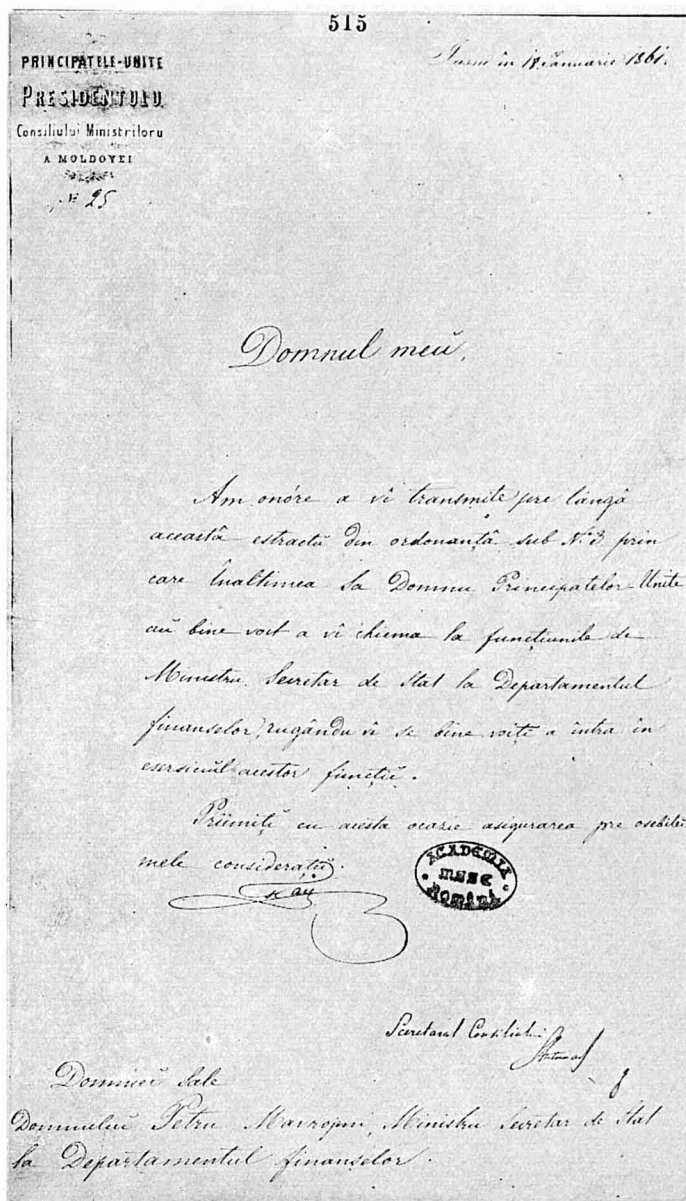 515
PRINCIPATELE-UNITE
PRESIDENTULU
Consiliului Ministriloru
A MOLDOVEI
№ 25
Iassi in 18 Ianuarie 1861.
Domnul meŭ,
Am onóre a vĭ transmite pre lângă
această estractŭ din ordonanţă sub N. 3 prin
care Înaltimea Sa Domnu Principatelor Unite
aŭ bine voit a vĭ chiema la funcţiunile de
Ministru Secretar de Stat la Departamentul
finanselor, rugându vĭ se bine voiţi a întra în
esersiciul acestor funcţiĭ.
Priimiţĭ cu acésta ocazie asigurarea pre osebiteĭ
mele consideraţiĭ.
ACADEMIA
ROMÂNĂ
Secretarul Consiliului
Domnieĭ Sale
Domnuluĭ Petru Mavrojni, Ministru Secretar de Stat
la Departamentul finanselor.